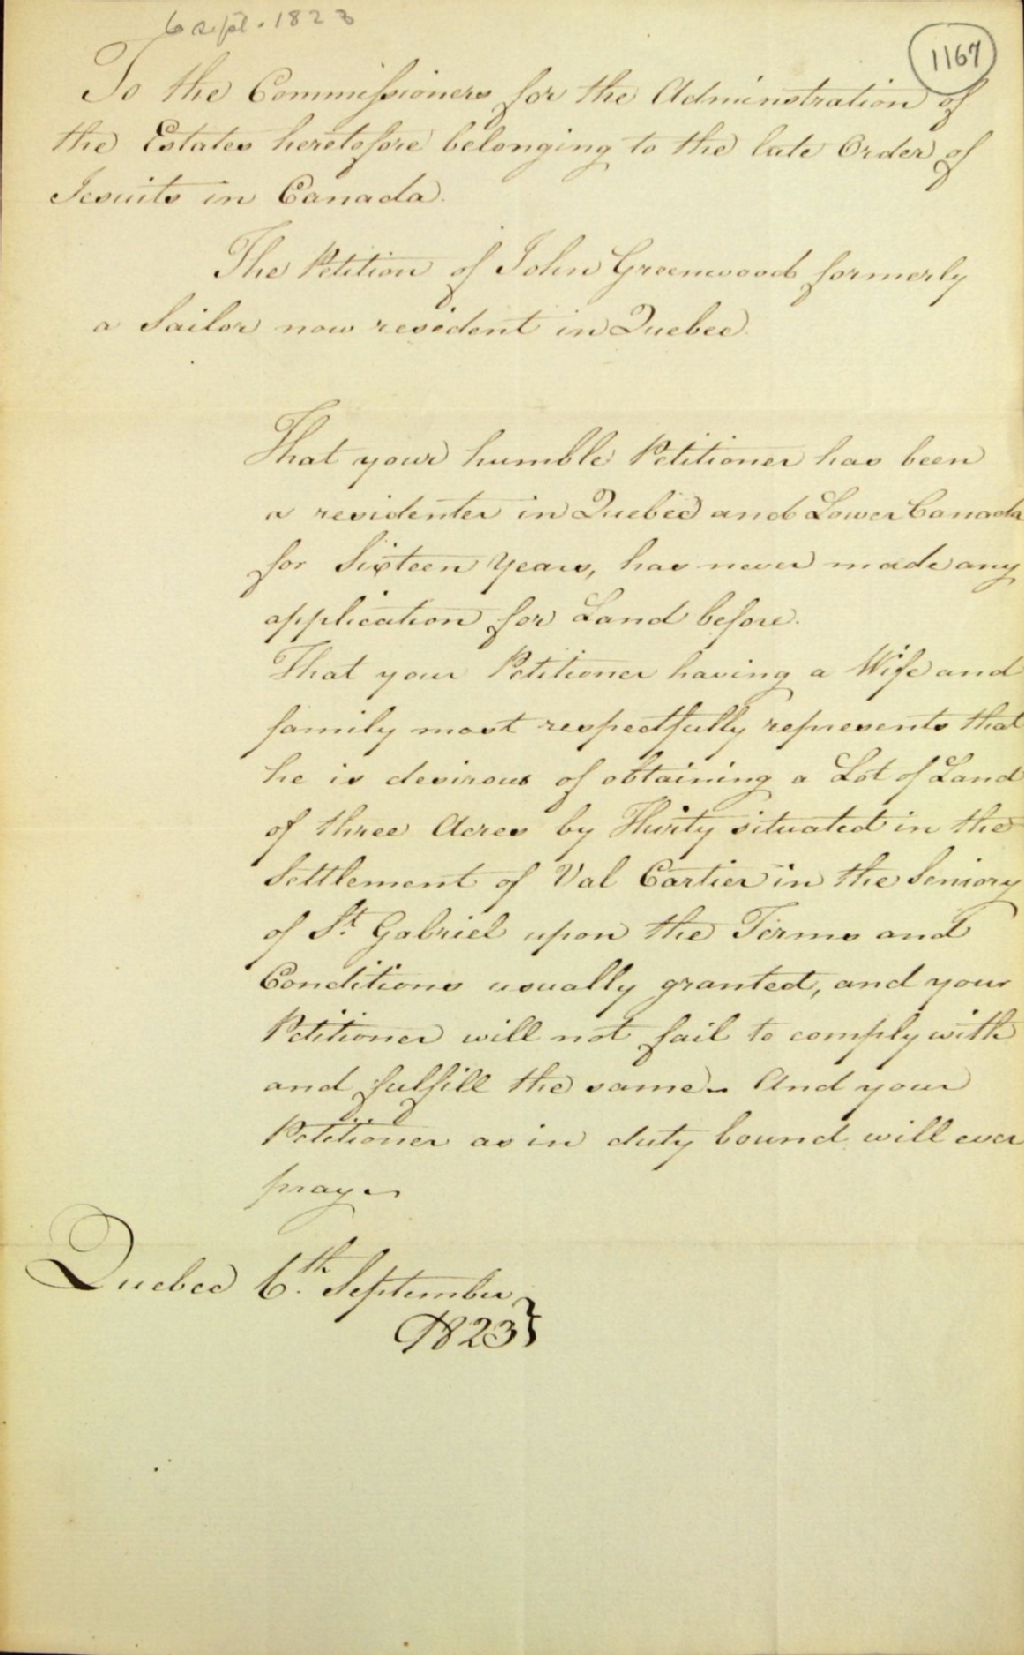 6 sept. 1823
1167
To the Commissioners for the Adminstration of
the Estates heretofore belonging to the late Order of
Jesuits in Canada.
The Petition of John Greenwood formerly
a Sailor now resident in Quebec.
That your humble Petitioner has been
a residenter in Quebec and Lower Canada
for Sixteen Years, has never made any
application for Land before.
That your Petitioner having a Wife and
family most respectfully represents that
he is desirous of obtaining a Lot of Land
of three Acres by Thirty situated in the
Settlement of Val Cartier in the Seniory
of St. Gabriel upon the Terms and
Conditions usually granted, and your
Petitioner will not fail to comply with
and fulfill the same. And your
Petitioner as in duty bound will ever
pray
Quebec 6.th September
1823}